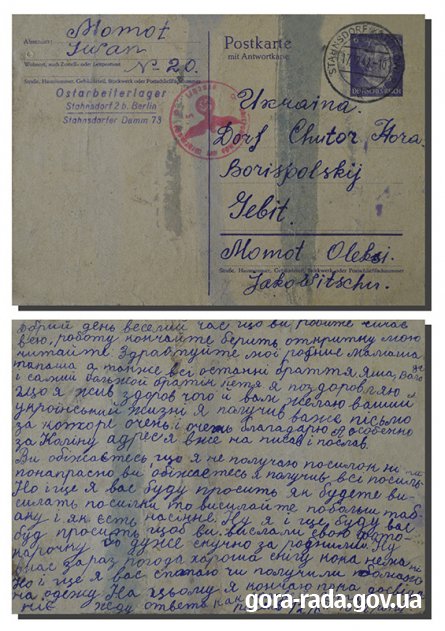 Momot
Absender:
Iwan
Wohnort, auch Zustell- oder Leitpostamt
№ 20.
Straße, Hausnummer, Gebäudeteil, Stockwerk oder Postschließfachnummer
Ostarbeiterlager
Stahnsdorf 2 b. Berlin
Stahnsdorfer Damm 73
Postkarte
mit Antwortkarte
STAHNSDORF
Ukraina.
Dorf Chutor Hora
Borispolskij
Gebit.
Momot Oleksi.
Straße, Hausnummer, Gebäudeteil, Stockwerk oder Postschließfachnummer
Jakowitschu.
Добрий день веселий час що ви робите
всю роботу кончайте берить откритку мою
читайте Здраствуйте мої родние Мамаша
папаша а также всі остані браття Яша, Вася
і самий больжой братік Петя я поздоровляю
що я жив здоров чого и вам желаю ваший
український жизни я получив важе письмо
за которе очень і очень благадарю і особенно
за Коліну адрес я вже на писав і послав.
Ви обіжаєтесь, що я не получаю посилок ни
понапрасно ви обіжаєтесь я получив всі посилк
Но і ще я вас буду просить як будете ви-
силать посилки то висилайте побольш таб-
аку і як єсть насіння. Ну я і ще буду вас
буд просить щоб ви вислали свою фото-
карочку бо дуже скучно за родними. Ну
у нас зараз погода хороша снігу кона нема
Но і ще я вас питаю чи получили
на одежу. На цьому я кончаю пока до
жду ответа
gora-rada.gov.ua